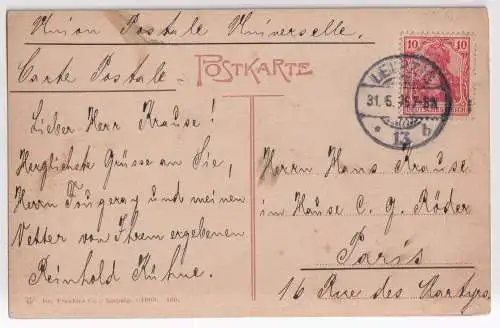 Union Postale Universelle.
Carte Postale.
POSTKARTE
10 10
DEUTSCHES REICH
LEIPZIG
31.5. 7-8
* 13 b
Lieber Herr Krause!
Herzlichste Grüsse an Sie,
Herrn Fougeray und meinen
Vetter von Ihrem ergebenen
Reinhold Kühne.
Herrn Hans Krause
im Hause C. G. Röder
Paris
16 Rue des Martyrs.
Dr. Trenkler Co., Leipzig. 1905.